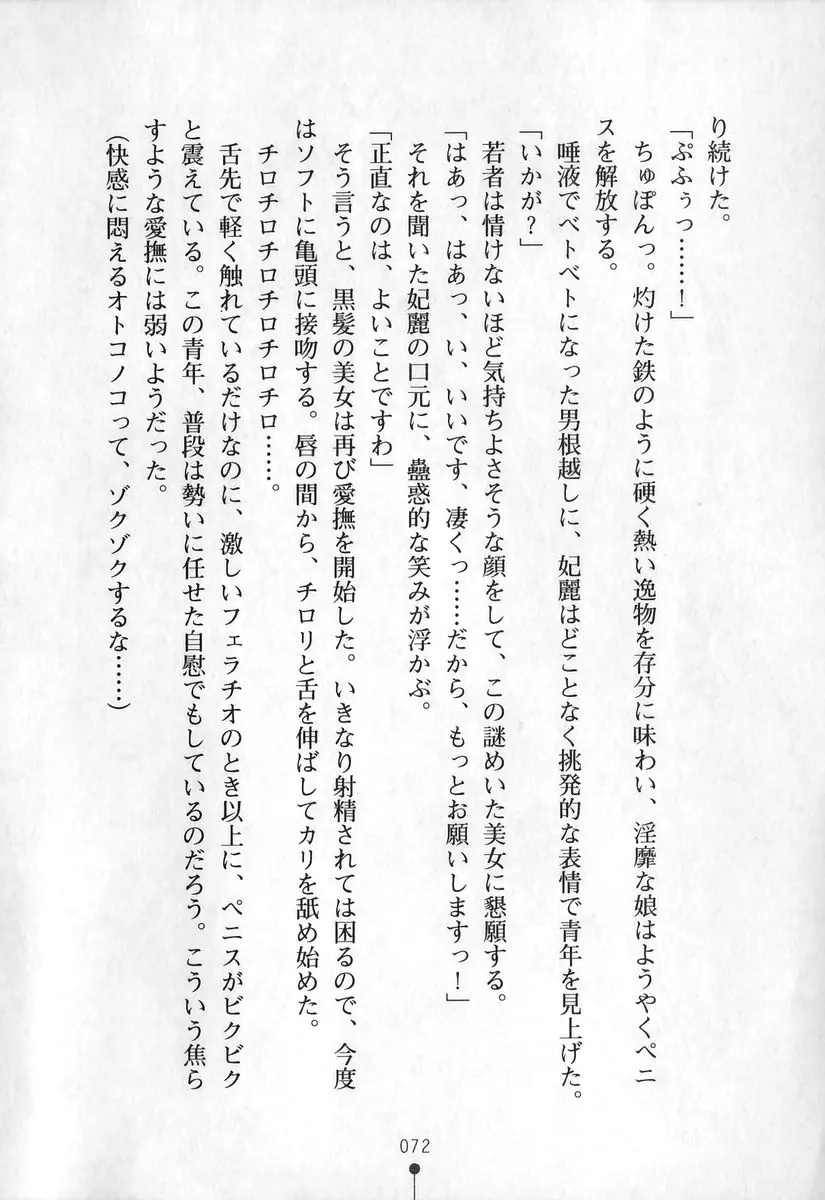 り続けた。
「ぷふぅっ……！」
ちゅぽんっ。灼けた鉄のように硬く熱い逸物を存分に味わい、淫靡な娘はようやくペニ
スを解放する。
唾液でベトベトになった男根越しに、妃麗はどことなく挑発的な表情で青年を見上げた。
「いかが？」
若者は情けないほど気持ちよさそうな顔をして、この謎めいた美女に懇願する。
「はあっ、はあっ、い、いいです、凄くっ……だから、もっとお願いしますっ！」
それを聞いた妃麗の口元に、蠱惑的な笑みが浮かぶ。
「正直なのは、よいことですわ」
そう言うと、黒髪の美女は再び愛撫を開始した。いきなり射精されては困るので、今度
はソフトに亀頭に接吻する。唇の間から、チロリと舌を伸ばしてカリを舐め始めた。
チロチロチロチロチロチロ……。
舌先で軽く触れているだけなのに、激しいフェラチオのとき以上に、ペニスがビクビク
と震えている。この青年、普段は勢いに任せた自慰でもしているのだろう。こういう焦ら
すような愛撫には弱いようだった。
（快感に悶えるオトコノコって、ゾクゾクするな……）
072